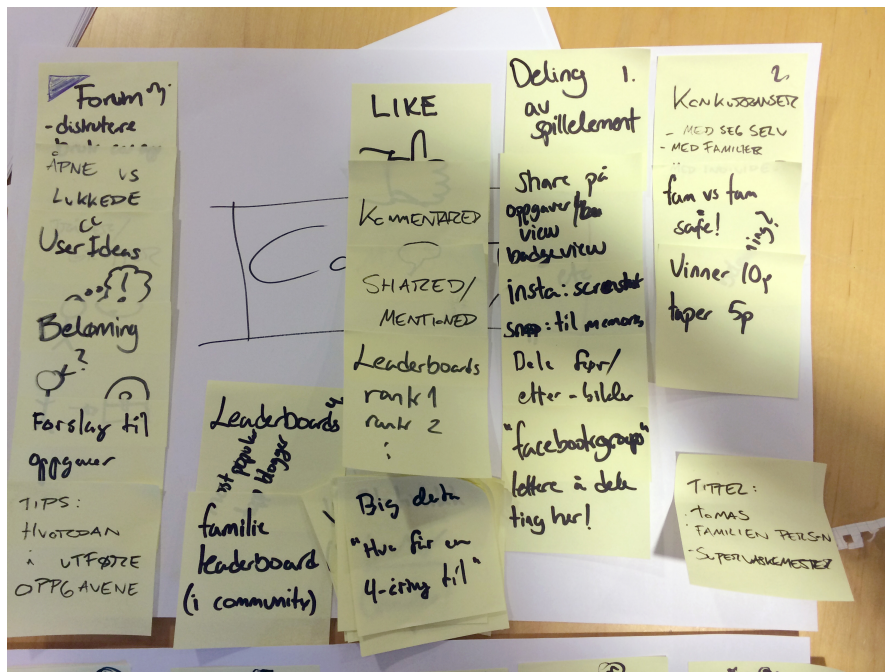 Forum
- diskutere
ÅPNE VS
LUKKEDE
User Ideas
Belønning
?
Forslag til
oppgaver
TIPS:
HVORDAN
å UTFØRE
OPPGAVENE
Leaderboards
blogger
familie
leaderboard
(i community)
LIKE
KOMMENTARER
SHARED/
MENTIONED
Leaderboards
rank 1
rank 2
:
Big data
"Hva får en
4-åring til"
Deling 1.
av
spillelement
share på
oppgaver/
view
badgeview
insta: screenshot
snap: til memors
Dele før/
etter-bilder
"facebookgroup"
lettere å dele
ting her!
2.
KONKURRANSER
- MED SEG SELV
- MED FAMILIER
fam vs fam
safe!
ting?
Vinner 10p
taper 5p
TITTEL:
TOMAS
FAMILIEN PERSON
- SUPERVASKEMESTER